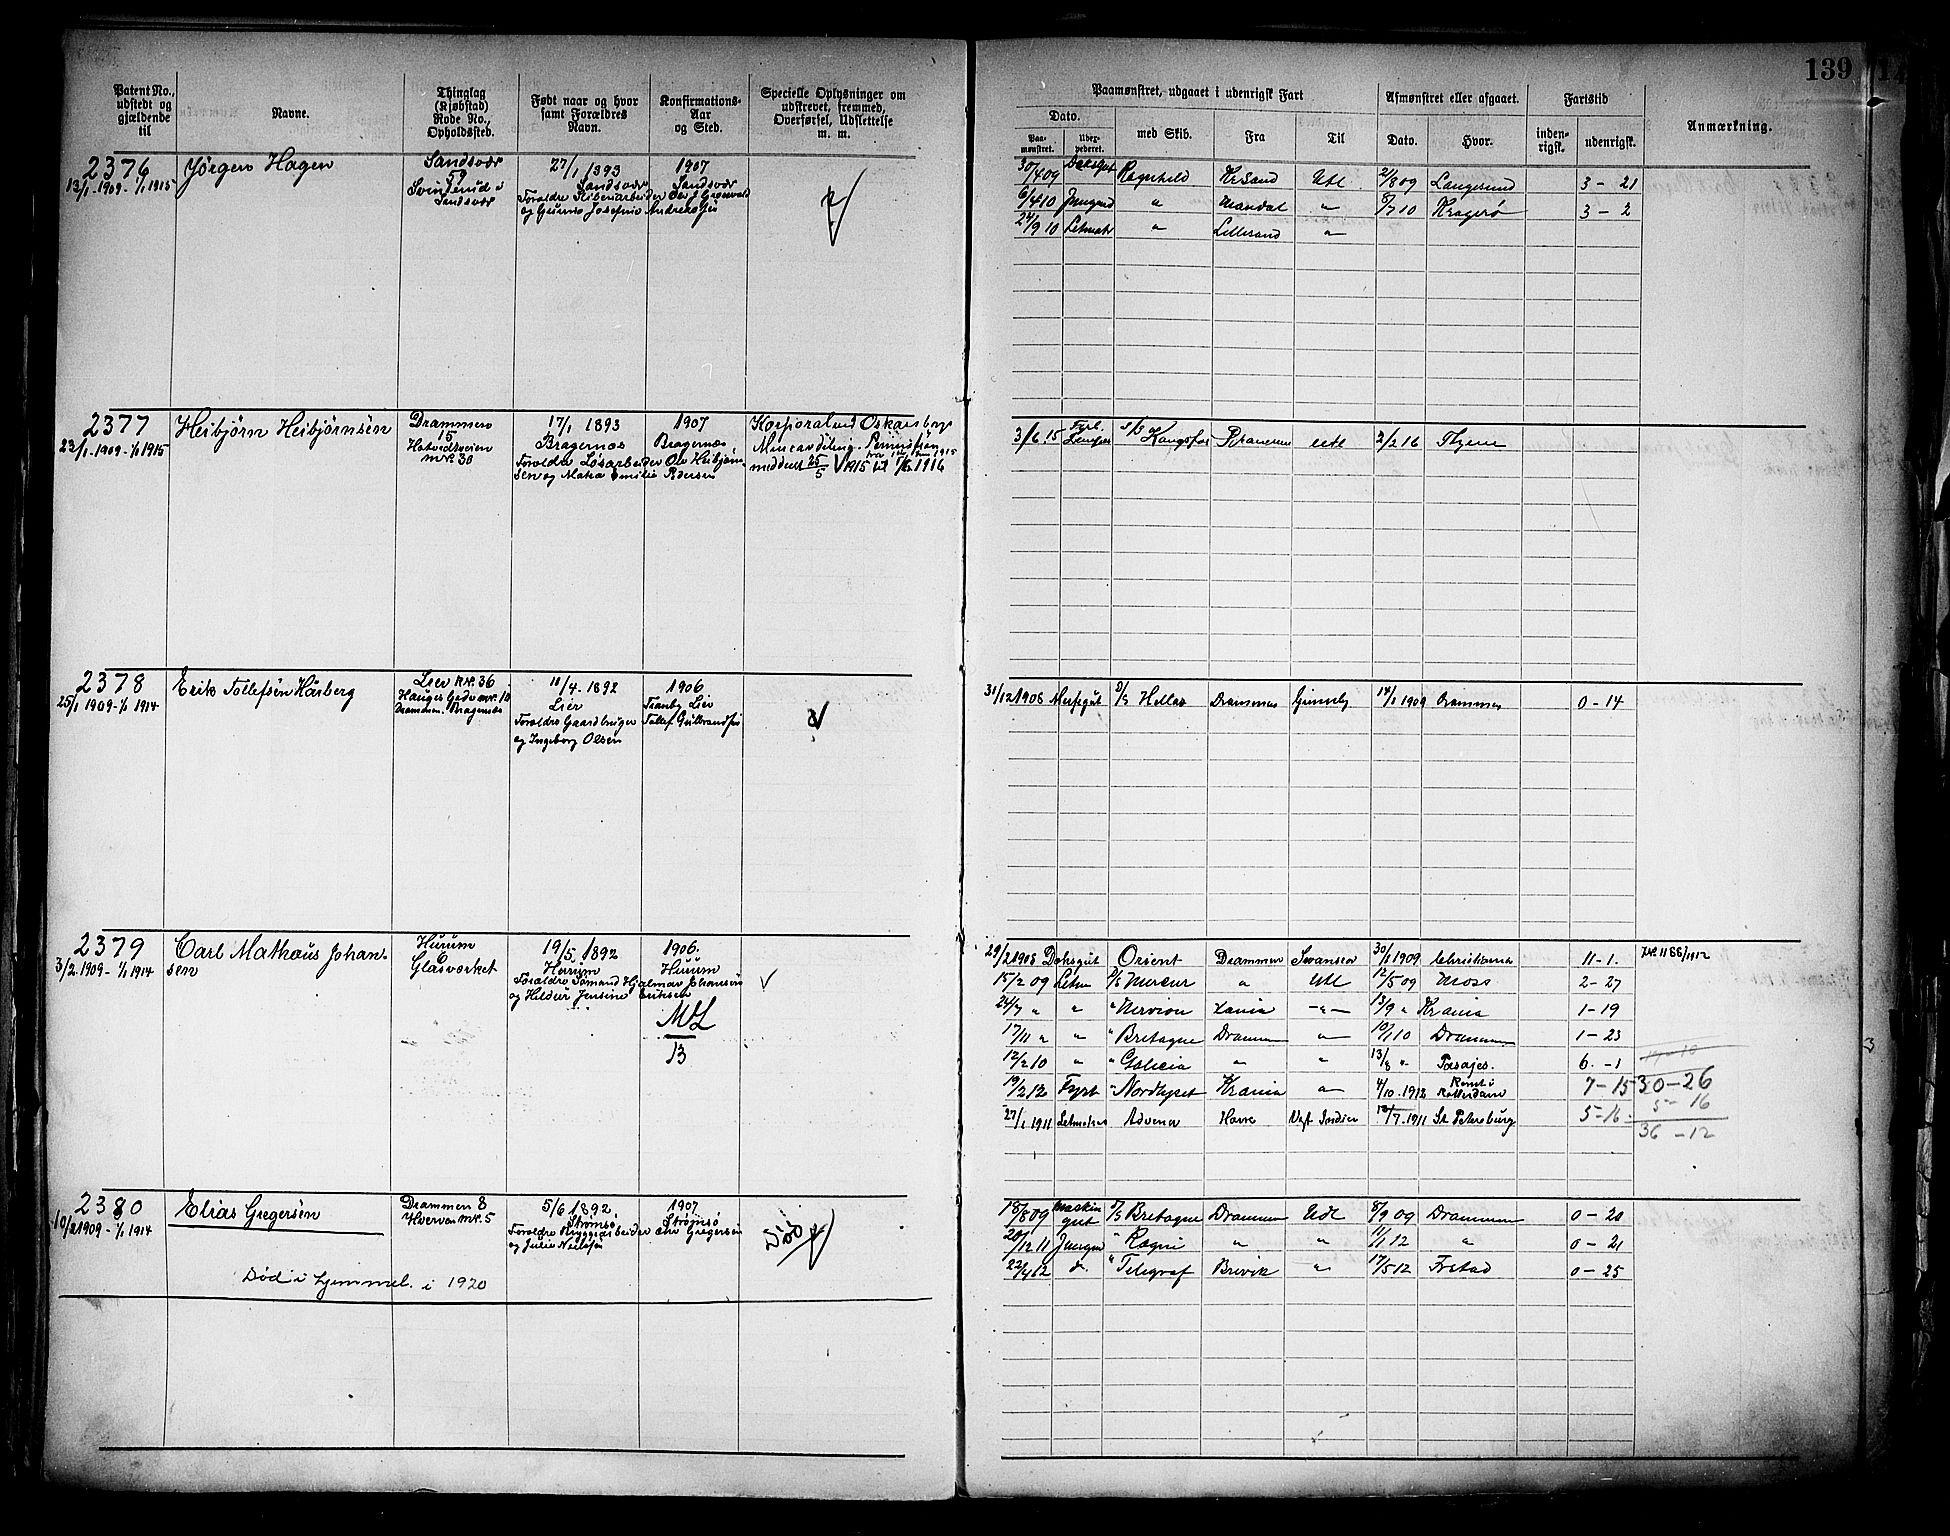 139
Patent No., udstedt og gjældende til
Navne.
Thinglag (Kjøbstad) Rode No., Opholdssted.
Født naar og hvor samt Forældres Navn.
Konfirmations-Aar og Sted.
Specielle Oplysninger om udstrevet, fremmed, Overførsel, Udslettelse m. m.
Paamønstret, udgaaet i udenrigsk Fart
Dato.
Paa-mønstret.
med Skib.
Fra
Til
Afmønstret eller afgaaet.
Dato.
Hvor.
Fartstid
inden-rigsk.
udenrigsk.
Anmærkning.
2376
13/1-1909-1/1 1915
Jørgen Hagen
Sandsvær
59
Sandsvær
27/1 1893
Sandsvær
og Gunno Josefine Andreasdtr
1907
Sandsvær
30/4 09 Dæksgut Ragnhild Krsand Udl 2/8 09 Langesund 3-21
6/4 10 Jungmd " Mandal " 8/7 10 Kragerø 3-2
24/9 10 Letmatr " Lillesand "
2377
23/1-1909-1/1 1915
Heibjørn Heibjørnsen
Drammen
15
Hotvedtveien
nr. 30
17/1 1893
Bragernæs
Forældre Løsarbeider Ole Heibjørn-
sen og Emilie
1907
Bragernæs
Korporalund Oskarsborg
Mineavdeling.
meddelt 25/5 1915 til 1916
3/6 15 Kongsfos Udl 2/2 16
2378
25/1 1909-1/1 1914
Erik Tollefsen Hårberg
Lier Nr. 36
Drammen. Bragernæs
11/4-1892
Lier
Forældre Gaardbruger
og Ingeborg Olsen
1906
Tranby Lier
31/12 1908 D/S Hellas Drammen Grimsby 14/1 1909 Drammen 0-14
2379
3/2.1909-1/1 1914
Carl Mathæus Johan-
sen
Hurum
6
Glasværket
19/5 1892
Hurum
Forældre Tomand Hjalmar Johansen
og Hilda Jensine Eriksen
1906.
Hurum
ML
13
29/2 1908 Dæksgut Orient Drammen Swansea 30/1 1909 Christiania 11-1. Nr. 1186/1912
15/2 09 Letm D/S Mercur " Udl 12/5 09 Moss 2-27
24/7 " " " Nervion Xania -"- 13/9 " Krania 1-19
17/11 " " " Bretagne Drammen " 10/1 10 Drammen 1-23
12/2 10 " " Galicia " " 13/8 " Pasajes. 6-1
19/2 12 Fyrb " Nordhvset Krania " 4/10.1912 Rømt i Rotterdam 7-15 30-26
27/1 1911 Letmatros Advena Havre Vest Indien 12/7.1911 St. Petersburg 5-16 5-16
36-12
2380
10/2 1909-1/1 1914
Elias Gregersen
Drammen 8
Hvervenn nr. 5
5/6 1892
Strømsø
Forældre Bryggearbeider Ant Gregersen
og Julie Nielsen
1907
Strømsø
Død
Død i hjemmet. i 1920
18/8 09 Maskin gut D/S Bretagne Drammen Udl 8/9 09 Drammen 0-20
20/12 11 Jungm " Ragni " " 11/1 12 " 0-21
22/4 12 d. " Telegraf Brevik " 17/5 12 Frstad 0-25